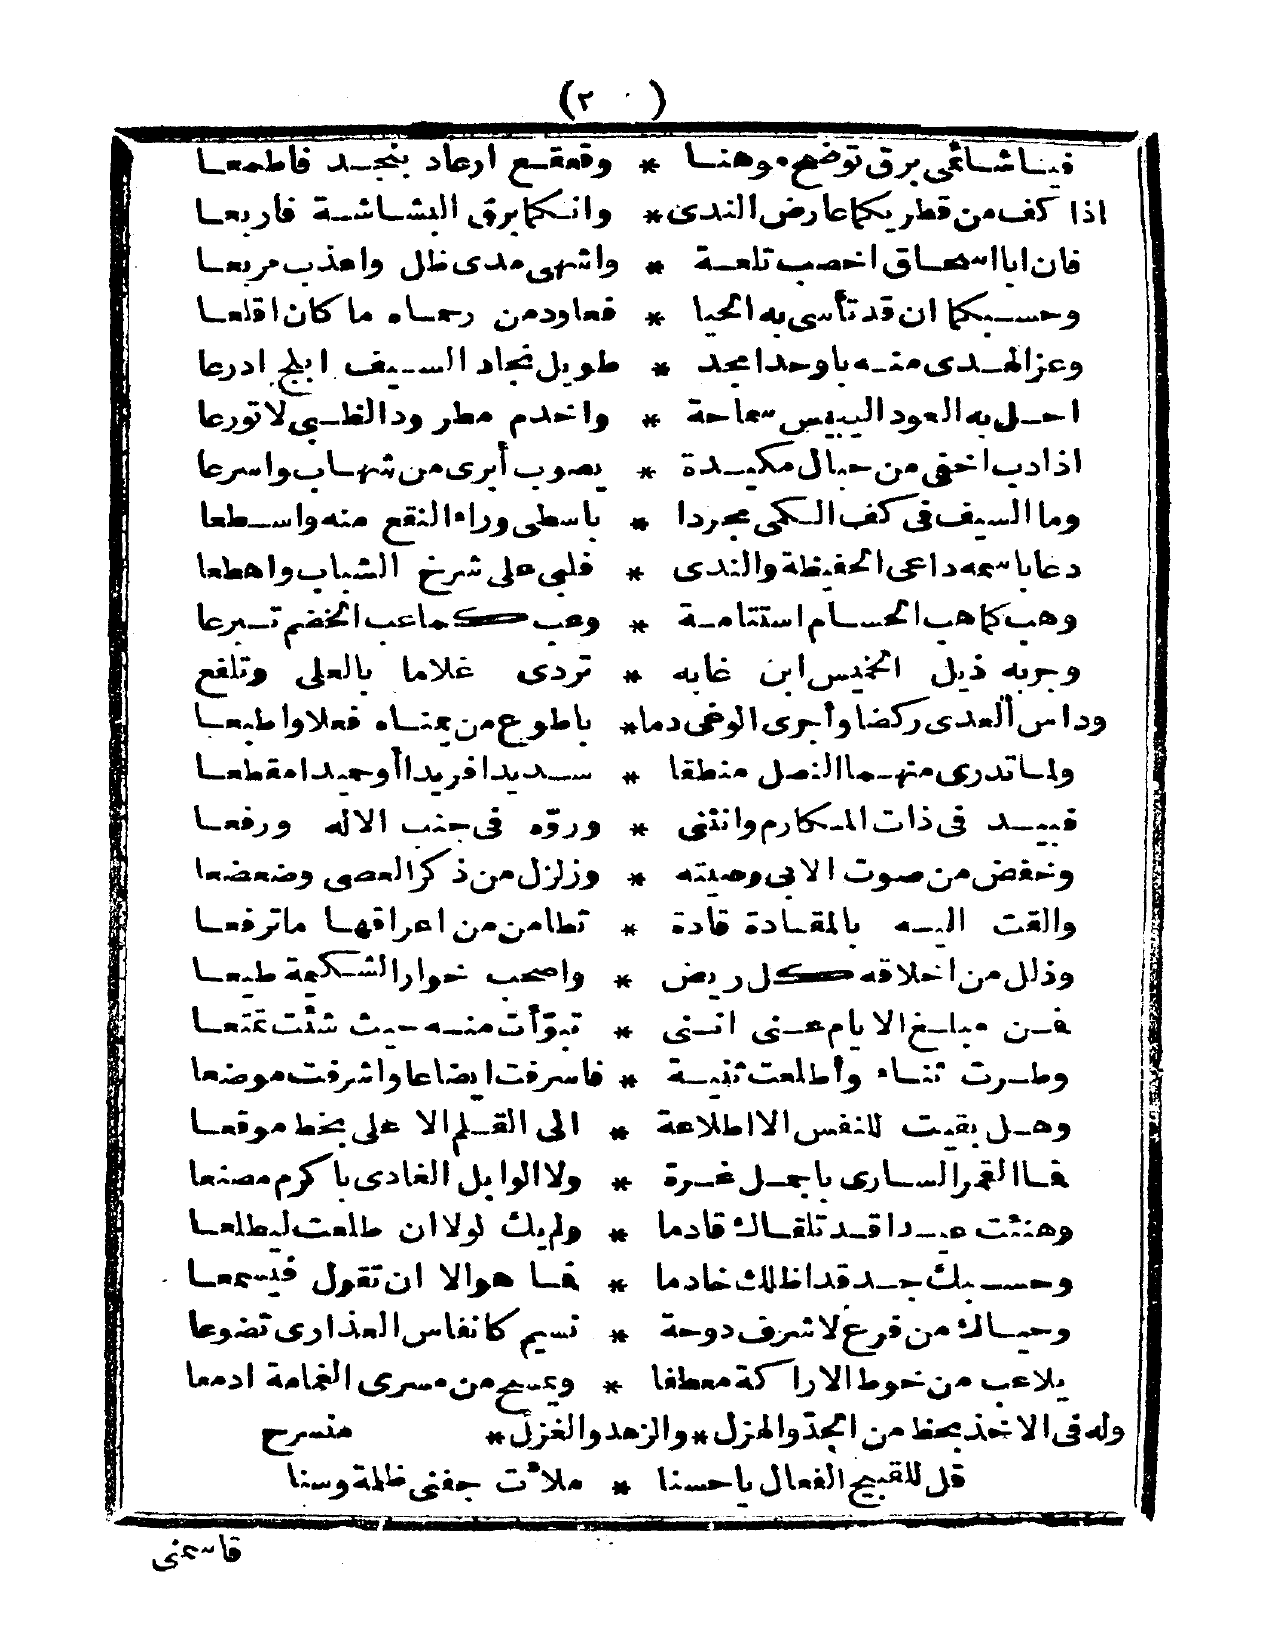 (٢٠)
فيا شائمى برق توضح موهنا * وقعقع ارعاد بنجد فاطمعا
اذا كف من قطريكما عارض الندى * وانكما برق البشاشة فاربعا
فان ابا اسحاق اخصب تلعة * واشهى مدى ظل واعذب مربعا
وحسبكما ان قد تأسى به الحيا * فعاود من رحماه ما كان اقلعا
وعز الهدى منه باوحد امجد * طويل نجاد السيف ابلج ادرعا
احل به العود اليبيس سماحة * واخدم مطرود الظبى لا تورعا
اذا دب اخفى من حبال مكيدة * يصوب أبرى من شهاب واسرعا
وما السيف فى كف الكمى مجردا * باسطى وراء النقع منه واسطعا
دعا باسمه داعى الحفيظة والندى * فلبى على شرخ الشباب واهطعا
وهب كما هب الحسام استنامة * وعب كما عب الخضم تبرعا
وجر به ذيل الخميس ابن غابه * تردى غلاما بالعلى وتلفع
وداس العدى ركضا وأجرى الوغى دما * باطوع من يمناه فعلا واطبعا
ولما تدرى منهما النصل منطقا * سديدا فريدا أو حيدا مقطعا
فبيد فى ذات المكارم وانثنى * وروّه فى جنب الاله ورفعا
وخفض من صوت الابى وصيته * وزلزل من ذكر العصى وضعضعا
والقت اليه بالمقادة قادة * تطامن من اعرافها ما ترفعا
وذلل من اخلاقه كل ريض * واصحب خوار الشكيمة طيعا
فمن مبلغ الايام عنى اننى * تبوّأت منه حيث شئت تمتعا
وطرت ثناء وأطلعت ثنية * فاسرفت ايضاعا واشرفت موضعا
وهل بقيت للنفس الا اطلاعة * الى القلم الا على بخط موقعا
فما القمر السارى باجمل غرة * ولا الوابل الغادى باكرم مصنعا
وهنئت عيدا قد تلقاك قادما * ولم يك لولا ان طلعت ليطلعا
وحسبك جد قد اظلك خادما * فما هو الا ان تقول فيسمعا
وحياك من فرع لا شرف دوحة * نسيم كانفاس العذارى تضوعا
يلاعب من خوط الاراكة معطفا * ويمسح من مسرى الغمامة ادمعا
وله فى الاخذ بحظ من الجدّ والهزل * والزهد والغزل * منسرح
قل للقبيح الفعال يا حسنا * ملأت جفنى ظلمة وسنا
قاسمنى